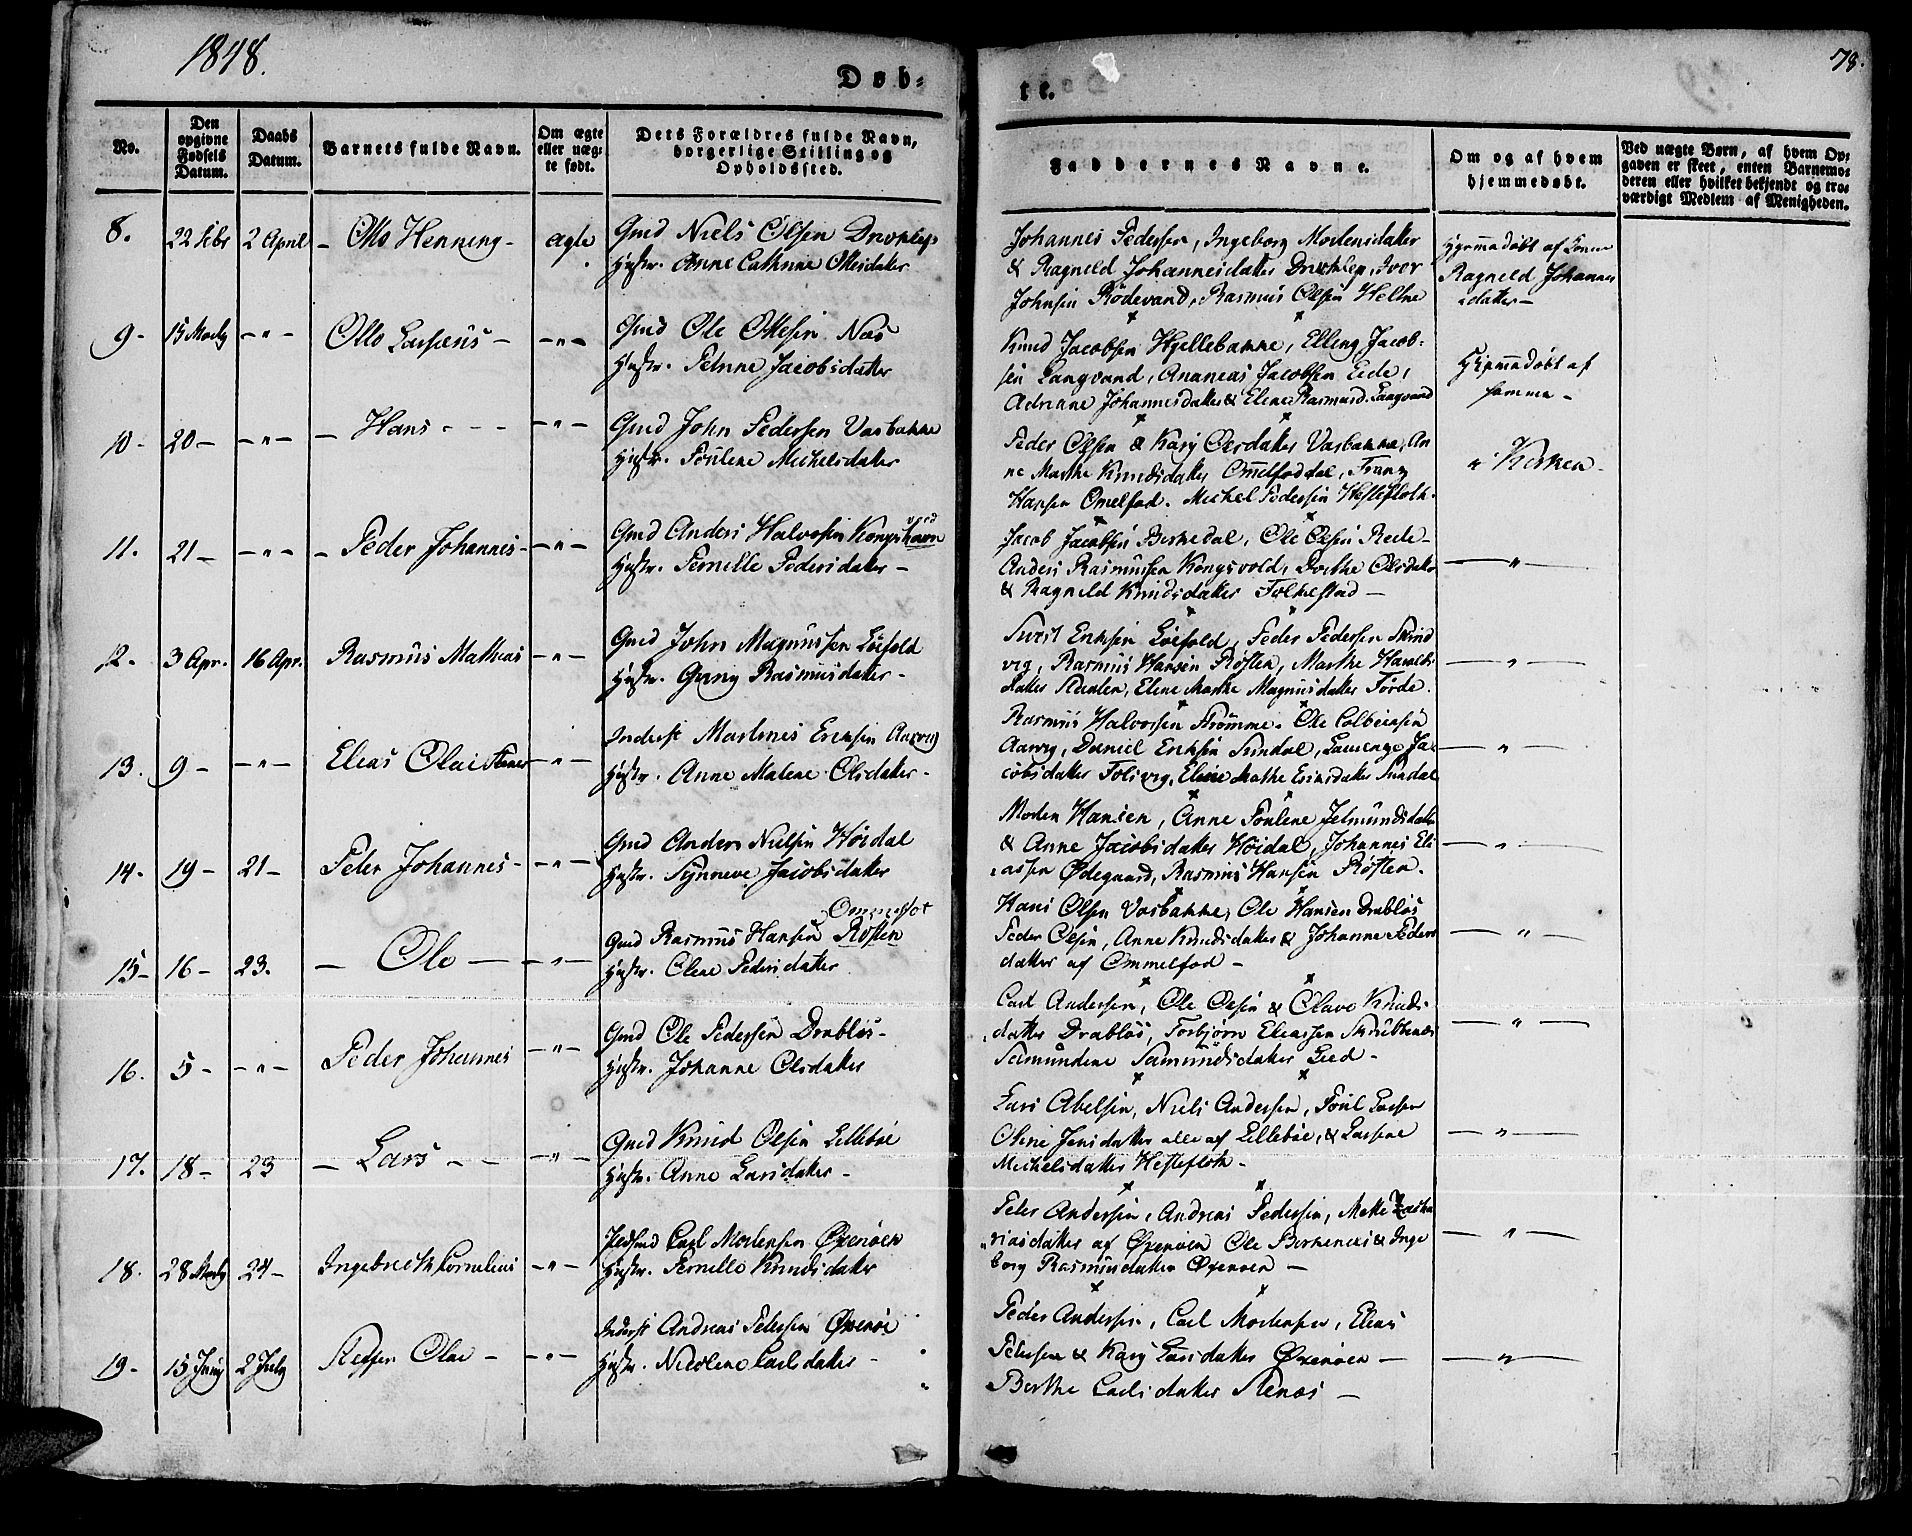 1848.
Døb-
te.
78.
No.
Den opgivne Fødsels Datum.
Daabs Datum.
Barnets fulde Navn.
Om ægte eller uægte født.
Dets Forældres fulde Navn, borgerlige Stilling og Opholdssted.
Faddernes Navne.
Om og af hvem hjemmedøbt.
Ved uægte Børn, af hvem Opgaven er skeet, enten Barnemoderen eller hvilket bekjendt og troværdigt Medlem af Menigheden.
8. 22 Febr 2 April - Otto Henning - ægte
Gmd Niels Olsen
Hustr. Anne Cathrine Ottesdatter
Johannes Pedersen, Ingeborg Mortensdatter
& Ragneld Johannesdatter Ivor
Johnsen Rødevand, Rasmus Olsen Heltne
Hjemmedøbt af
Ragneld Johannes
datter -
9 - 15 Marts - " - Otto - " -
Gmd Ole Ottesen Næs
Hustr. Petrine Jacobsdatter
Knud Jacobsen Hjellebakke, Elling Jacob-
sen Langvand, Ananias Jacobsen Eide,
Adriane Johannesdatter & Eline Rasmusd. Langvand
Hjemmedøbt af
samme -
10 - 20 - - " - - Hans - - " -
Gmd John Pedersen Vasbakke
Hustr. Poulene Michelsdatter
Peder Olsen & Kary Olsdatter Vasbakke, An
ne Marthe Knudsdatter Franz
Hansen Omelfod. Michel Pedersen Hestefloth.
i Kirken -
11. 21 - - " - - Peder Johannes - - " -
Gmd Anders Halvorsen Kongshavn
vold
Hustr. Pernille Pedersdatter -
Jacob Jacobsen Birkedal, Ole Olsen
Anders Rasmussen Kongsvold, Dorthe Olsdatter
& Ragneld Knudsdatter Folkestad -
- " -
12. 3 Apr. 16 Apr. Rasmus Mathias - " -
Gmd John Magnussen Løfold
Hustr. Rasmusdatter -
Sivert Eriksen Løfold, Peder Pedersen Strind
vig, Rasmus Hansen Røsten, Marthe Haralds
datter Eline Marthe Magnusdatter Førde.
- " -
13. 9 - - " - Elias Olai - " -
Inderst Martines Eriksen Aarvig
Hustr. Anne Malene Olsdatter -
Rasmus Halvorsen Strømme. Ole Colbeinsen
Aarvig, Daniel Eriksen Sundal, Ja
cobsdatter Eline Marthe Eriksdatter Sundal
- " -
14. 19 - 21 - Peter Johannes - - " -
Gmd Anders Nielsen Høidal
Hustr. Synneve Jacobsdatter
Morten Hansen, Anne Poulene Jetmundsdatter
& Anne Jacobsdatter Høidal, Johannes Eli
assen Ødegaard, Rasmus Hansen Røsten.
- " -
15 - 16 - 23. - Ole - - " -
Gmd Rasmus Hansen Røsten
Hustr. Oline Pedersdatter
Hans Olsen Vasbakke, Ole Hansen Drabløs
Peder Olsen, Anne Knudsdatter & Johanne Peders
datter af Ommelfod -
- " -
16. 5 - - " - Peder Johannes - " -
Gmd Ole Pedersen Drabløs -
Hustr. Johanne Olsdatter
Carl Andersen, Ole Olsen & Olave Knuds-
datter Drabløs, Torbjørn Eliassen Skrubbenæs
Samundine Samundsdatter Lied -
- " -
17. 18 - 23 - Lars - - - " -
Gmd Knud Olsen Lillebøe
Hustr. Anne Larsdatter -
Lars Abelsen, Niels Andersen, Poul Larsen
Oline Jensdatter alle af Lillebøe, & Larsine
Michelsdatter Hestefloth -
- " -
18. 28 Marts 24 - Ingebrecth Cornelius - " -
Carl Mortensen Øxenøen
Hustr. Pernille Knudsdatter
Peter Andersen, Andreas Pedersen, Mette Zacha
riasdatter af Øxenøen Ole Birkenæs & Inge
borg Rasmusdatter Øxenøen -
- " -
19 - 15 Juny 2 July Olai - - " -
Inderst Andreas Petersen Øxenøe
Hustr. Nicoline Carlsdatter -
Peder Andersen, Carl Mortensen, Elias
Petersen & Kary Larsdatter Øxenøen -
Berthe Carlsdatter Stenæs -
- " -